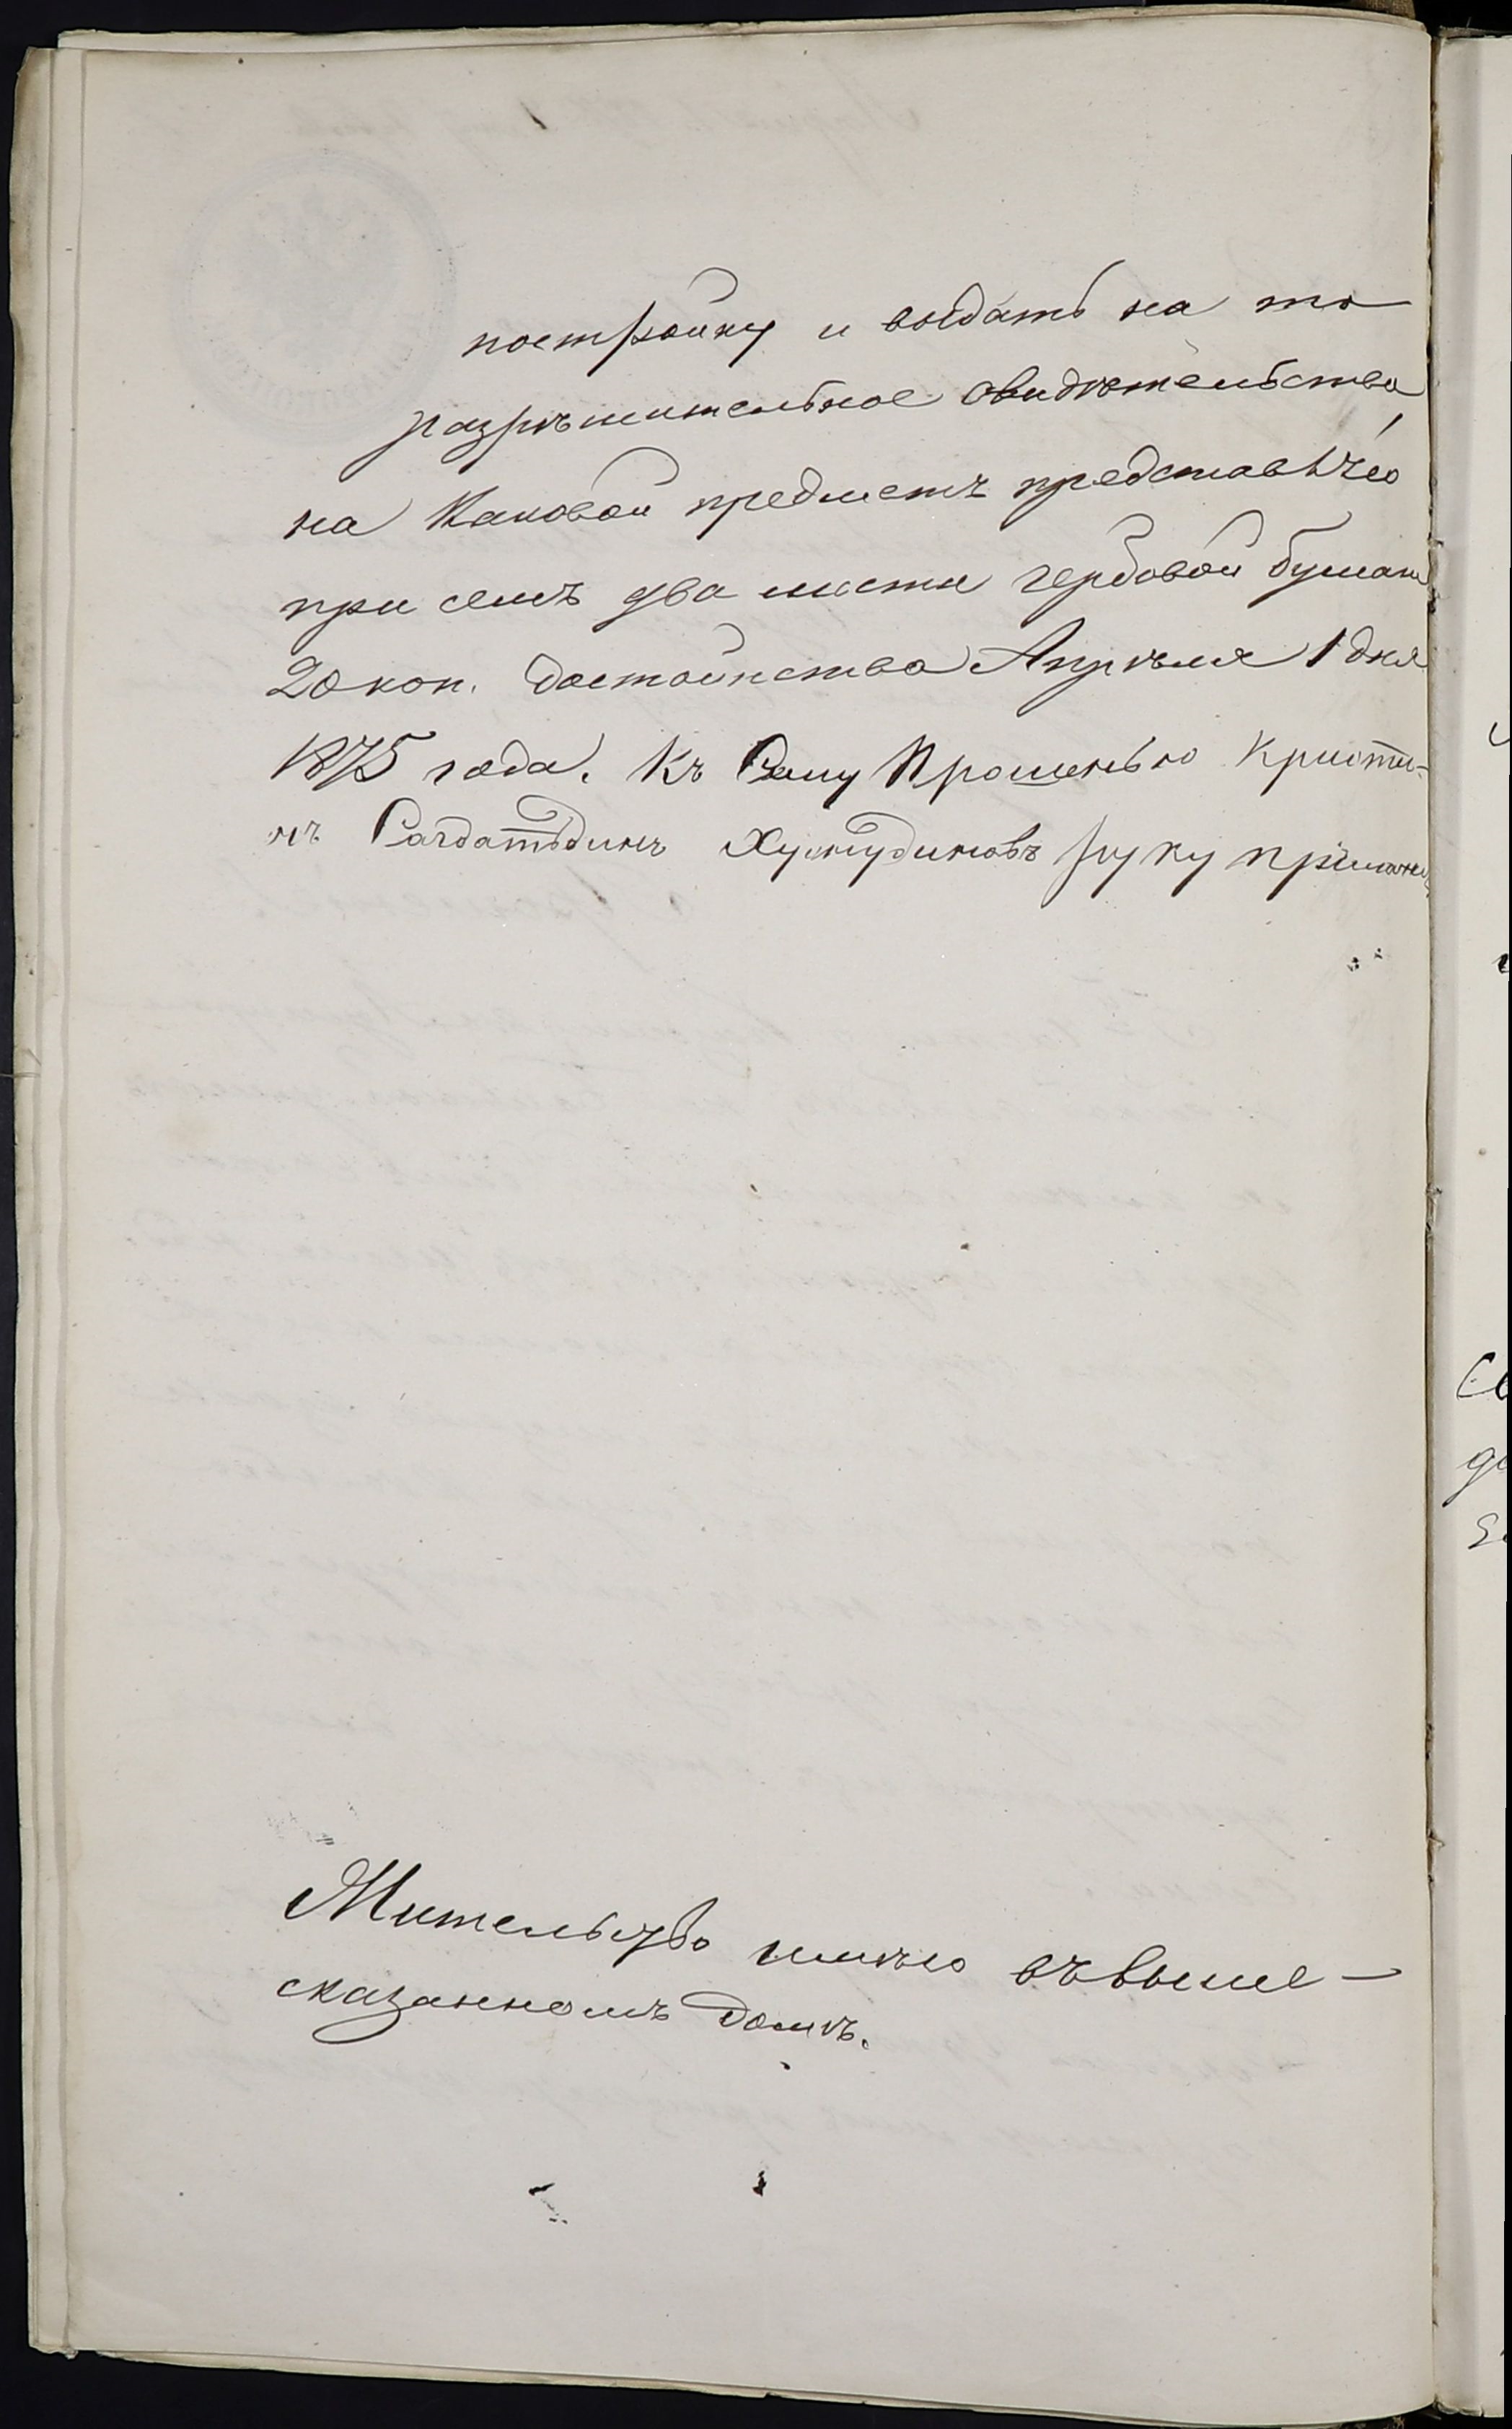 постройку и выдать на то
разрѣшительное свидѣтельство,
на каковой предметъ представлѣю
при семъ два листа гербовой бумаги
20 коп. достоинства Апрѣля 1 дня
1875 года. Къ Сему Прошенью Крисття-
нъ Хуснудиновъ руку приложилъ
Жительство имѣю въ выше-
сказанномъ домѣ.